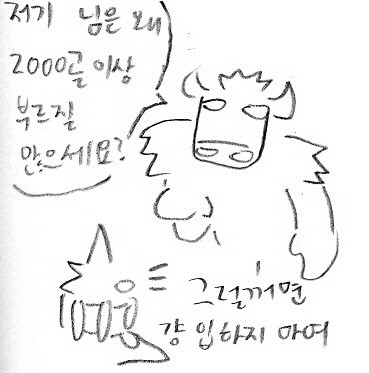 저기 님은 왜
2000골 이상
부르질
않으세요?
그럴꺼면
걍 입하지 마여